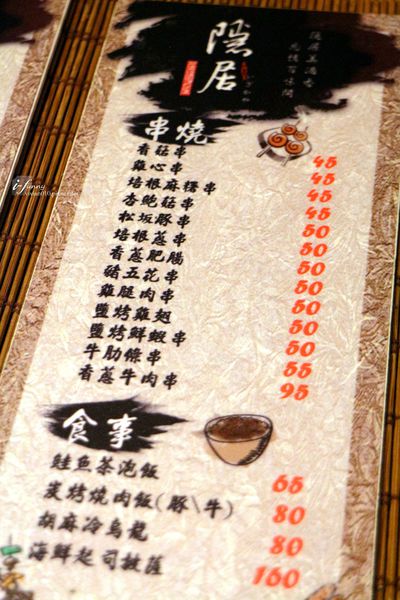 隱居
串燒
香菇串 45
雞心串 45
培根麻糬串 45
杏鮑菇串 45
松坂豚串 50
培根蔥串 50
香蔥肥腸 50
豬五花串 50
雞腿肉串 50
鹽烤雞翅 50
鹽烤鮮蝦串 50
牛肋條串 55
香蔥牛肉串 95
食事
鮭魚茶泡飯 65
炭烤燒肉飯(豚\牛) 80
胡麻冷烏龍 80
海鮮起司披薩 160
i-funny